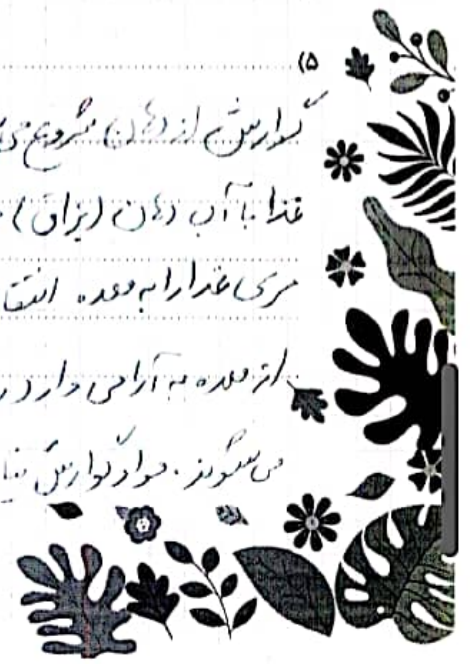 (۵
گوارش از دهان شروع می
غذا با آب دهان (بزاق)
مری غذا را به معده انتقا
از معده به آرامی وارد ر
می‌شوند. مواد گوارش نیا